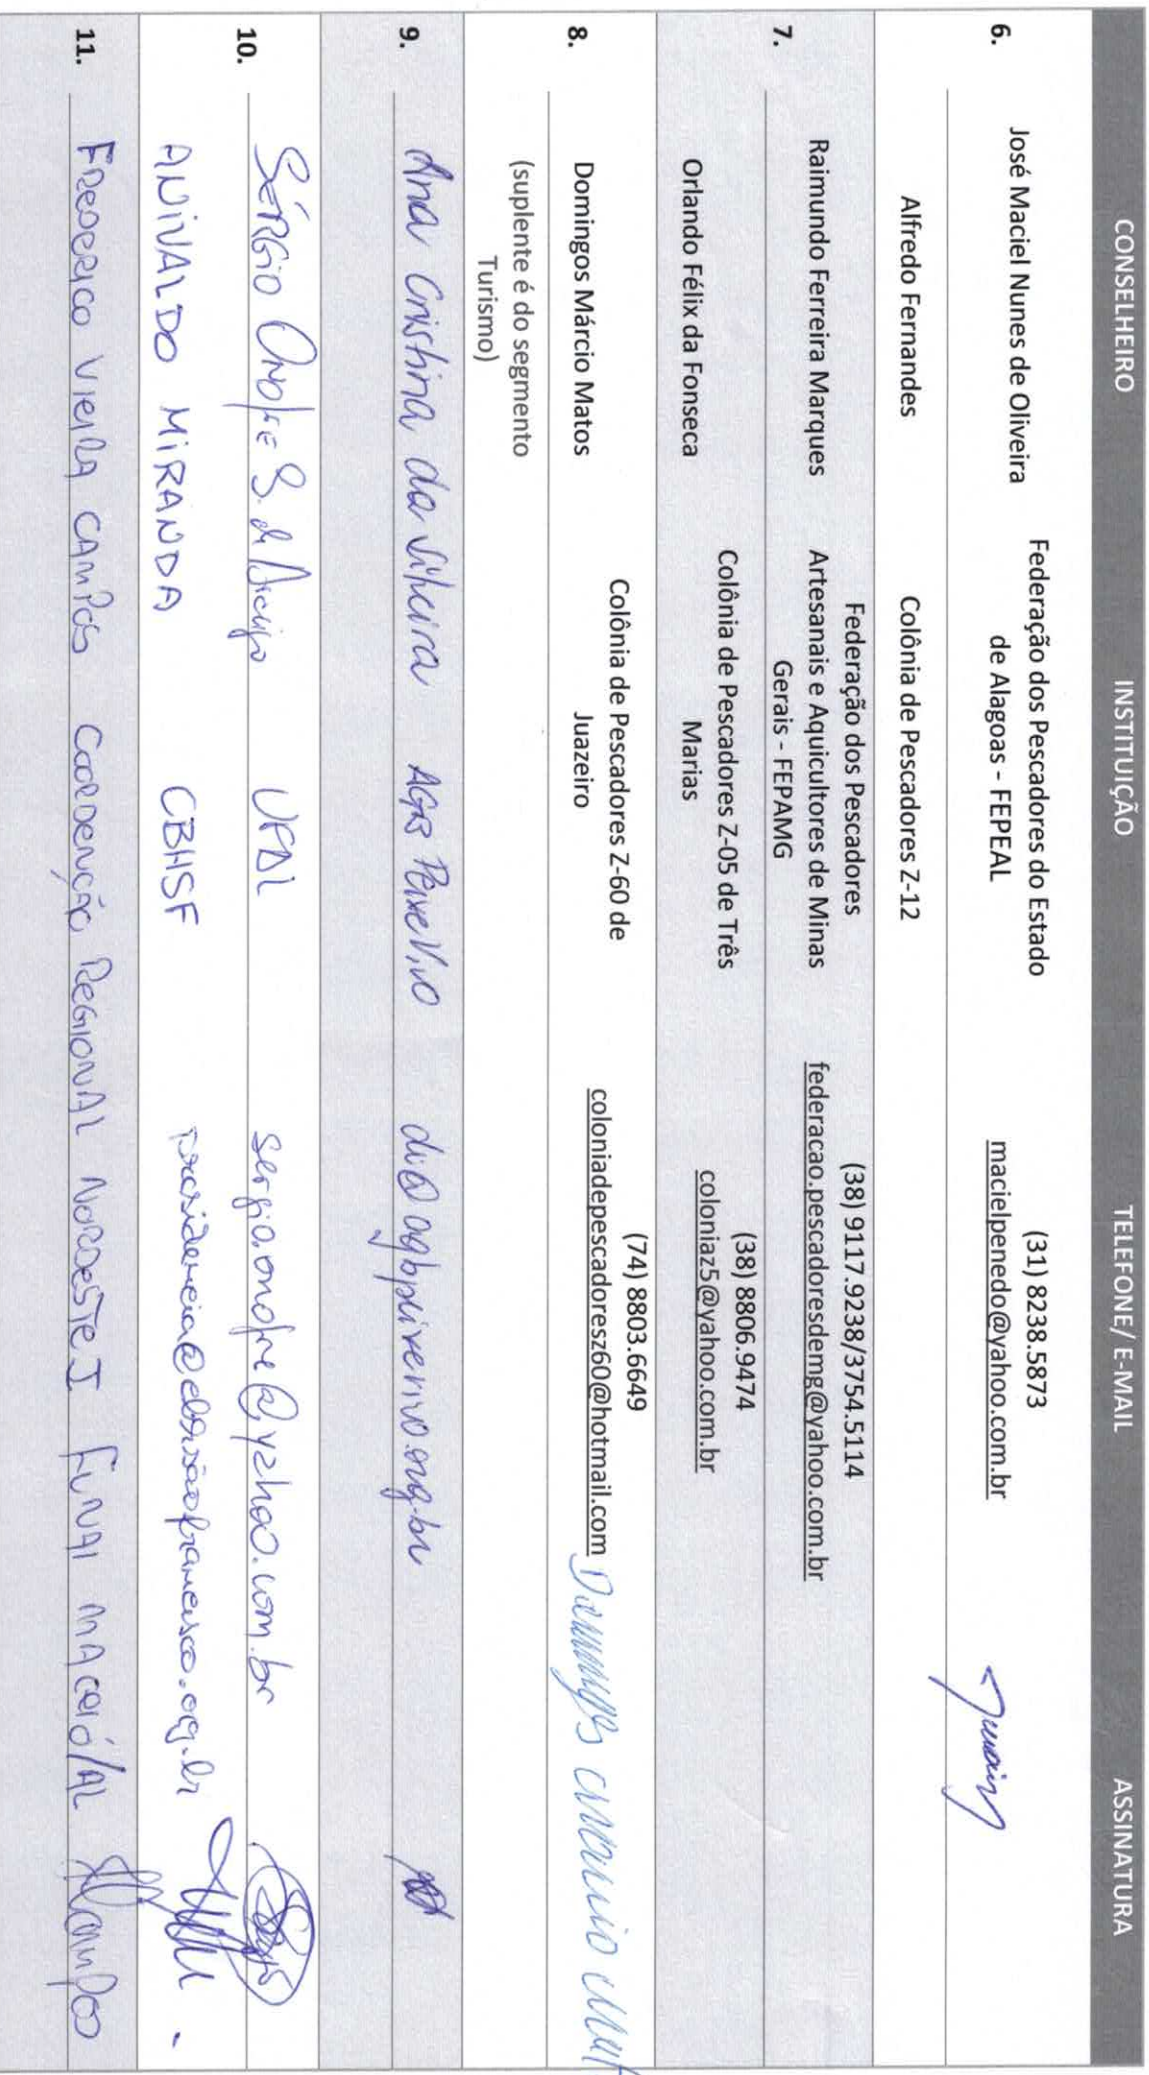 CONSELHEIRO INSTITUIÇÃO TELEFONE/ E-MAIL ASSINATURA
6.
José Maciel Nunes de Oliveira
Federação dos Pescadores do Estado
de Alagoas - FEPEAL
(31) 8238.5873
macielpenedo@yahoo.com.br
Alfredo Fernandes
Colônia de Pescadores Z-12
7.
Raimundo Ferreira Marques
Federação dos Pescadores
Artesanais e Aquicultores de Minas
Gerais - FEPAMG
(38) 9117.9238/3754.5114
federacao.pescadoresdemg@yahoo.com.br
Orlando Félix da Fonseca
Colônia de Pescadores Z-05 de Três
Marias
(38) 8806.9474
coloniaz5@yahoo.com.br
8.
Domingos Márcio Matos
Colônia de Pescadores Z-60 de
Juazeiro
(74) 8803.6649
coloniadepescadoresz60@hotmail.com
(suplente é do segmento
Turismo)
9.
Ana Cristina da Silveira AGB Peixe Vivo di@agbpeixevivo.org.br
10.
SÉRGIO Onofre S. de Araújo UFAL sergio.onofre@yahoo.com.br
ANIVALDO MIRANDA CBHSF presidencia@cbhsaofrancisco.org.br
11.
FREDERICO VIEIRA CAMPOS COORDENAÇÃO REGIONAL NORDESTE I FUNAI MACEIÓ/AL Campos